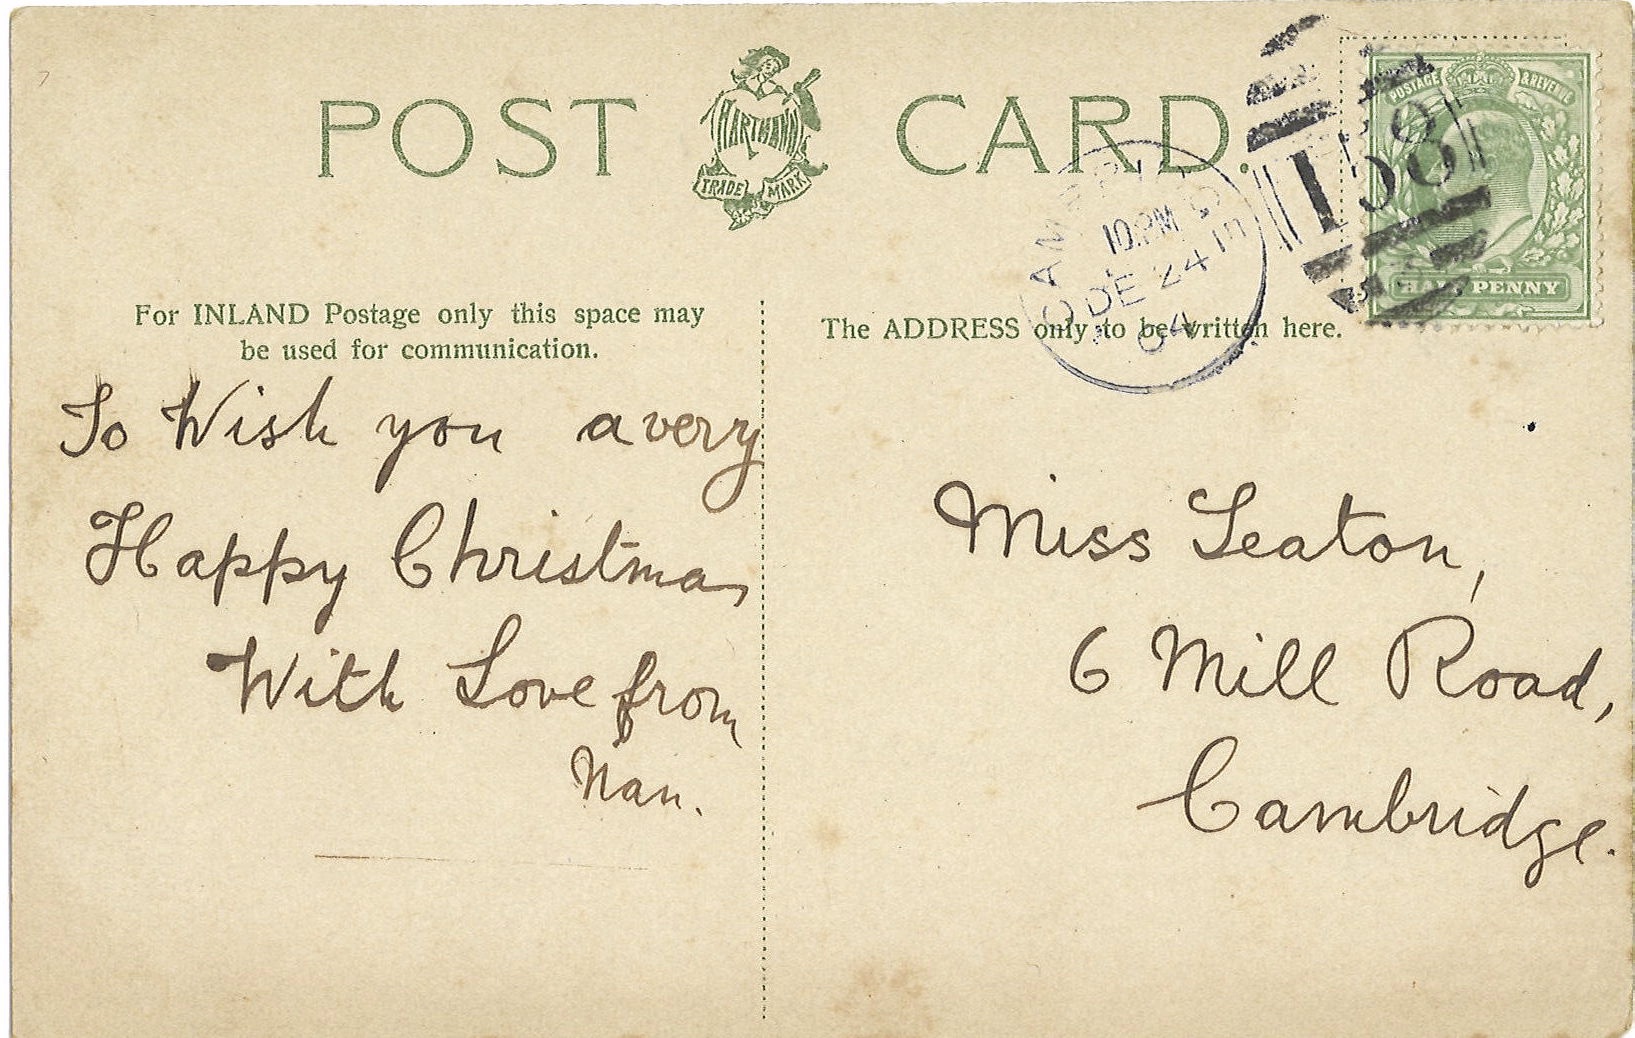 POST CARD.
HARTMANN
TRADE MARK
POSTAGE & REVENUE
HALF PENNY
158
CAMBRIDGE
10.PM
DE 24
04
For INLAND Postage only this space may
be used for communication.
The ADDRESS only to be written here.
To Wish you a very
Happy Christmas
With Love from
Nan.
Miss Seaton,
6 Mill Road,
Cambridge.